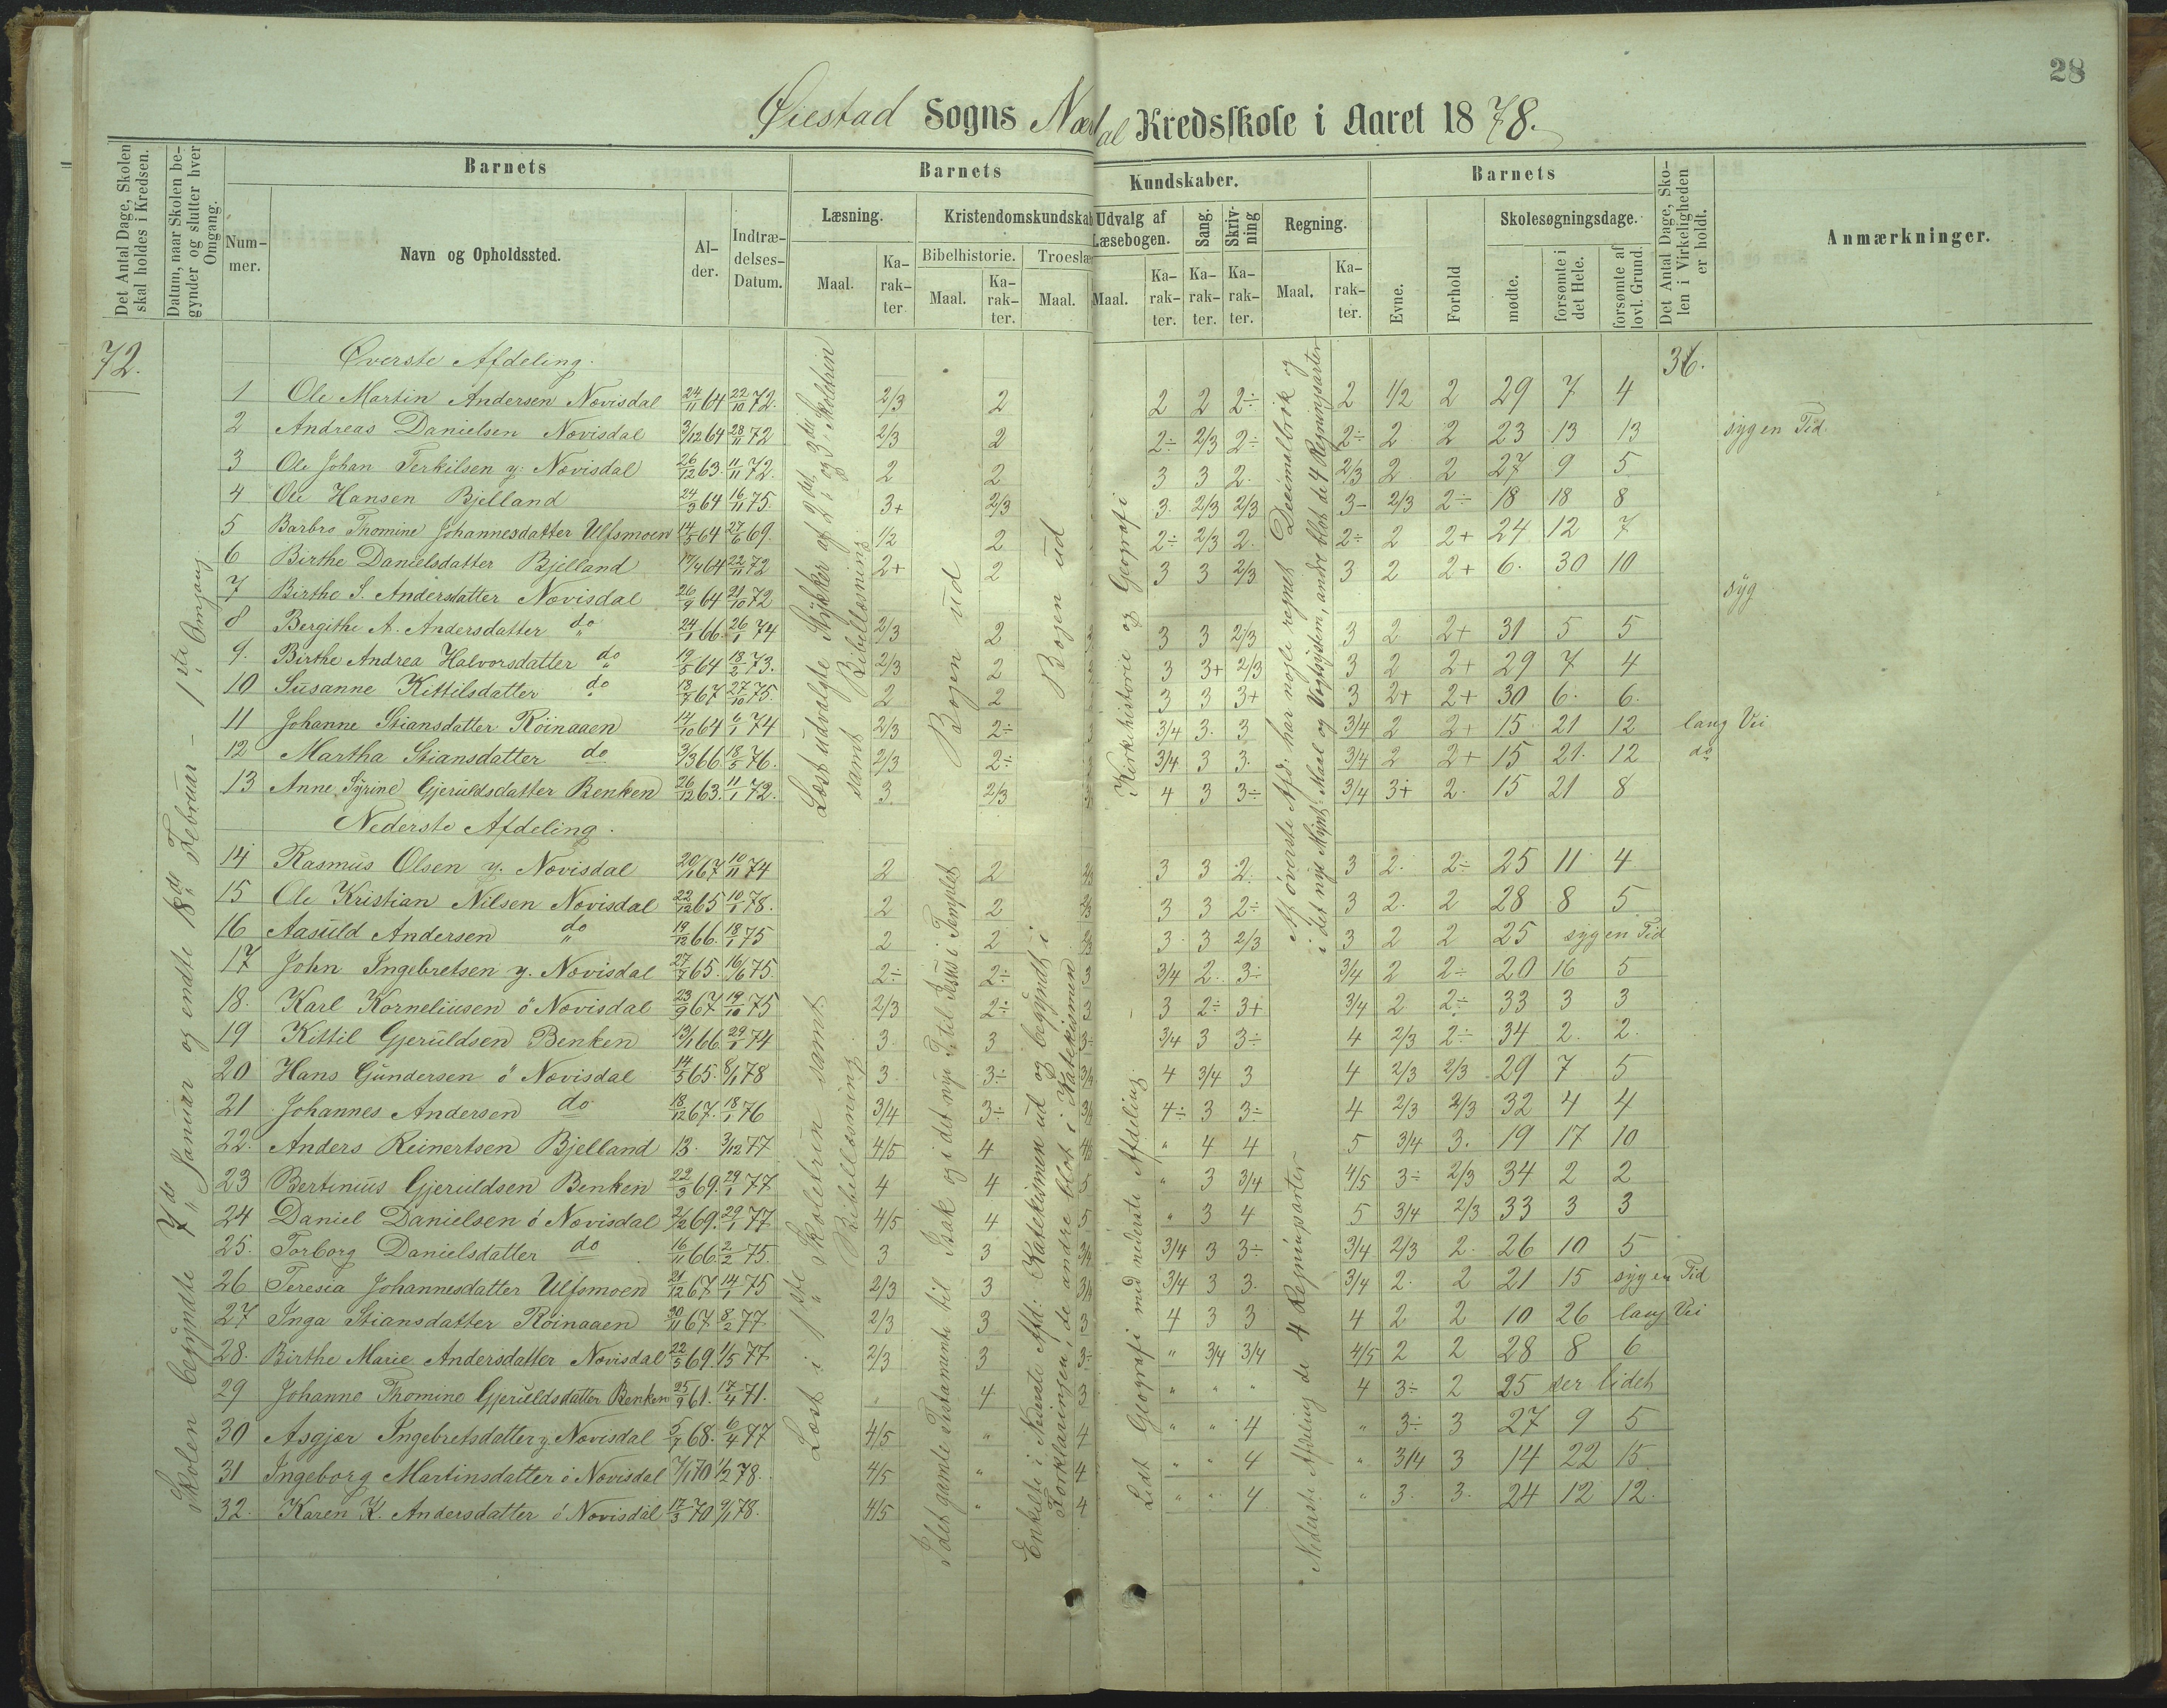 28
Øiestad Sogns Kredsskole i Aaret 1878.
Det Antal Dage, Skolen skal holdes i Kredsen.
Datum, naar Skolen begynder og slutter hver Omgang.
Barnets
Barnets Kundskaber.
Barnets
Det Antal Dage, Skolen i Virkeligheden er holdt.
Anmærkninger.
Nummer.
Navn og Opholdssted.
Alder.
Indtrædelses-Datum.
Læsning.
Kristendomskundskab
Udvalg af Læsebogen.
Sang.
Skrivning
Regning.
Evne.
Forhold
Skolesøgningsdage.
Bibelhistorie.
Troeslæ
Maal.
Karakter
Maal.
Karakter.
Maal.
Maal.
Karakter.
Karakter.
Karakter.
Maal.
Karakter.
mødte.
forsømte i det Hele.
forsømte af lovl. Grund.
72.
36.
Skolen begyndte 7de Januar og endte 18de Februar – 1ste Omgang
Øverste Afdeling.
1 Ole Martin Andersen Novisdal 24/11 64 22/10 72. 2/3 2 2 2 2÷ 2 1/2 2 29 7 4
2 Andreas Danielsen Novisdal 3/12 64 28/11 72 2/3 2 2÷ 2/3 2÷ 2÷ 2 2 23 13 13 syg en Tid
3 Ole Johan Terkilsen y. Novisdal 26/12 63. 11/11 72. 2 2 3 3 2. 2/3 2 2 27 9 5
4 Ole Hansen Bjelland 24/3 64 16/11 75. 3+ 2/3 3. 2/3 2/3 3- 2/3 2÷ 18 18 8
5 Barbro Thomine Johannesdatter Ulfsmoen 14/5 64 27/6 69. 1/2 2 2÷ 2/3 2. 2÷ 2 2+ 24 12 7
6 Birthe Danielsdatter Bjelland 17/4 64 22/11 72 2+ 2 3 3 2/3 3 2 2+ 6. 30 10
7 Birthe S. Andersdatter Novisdal 26/9 64 21/10 72 syg
8 Bergithe A. Andersdatter do 24/1 66. 26/1 74 2/3 2 3 3 2/3 3 2 2+ 31 5 5
9. Birthe Andrea Halvorsdatter do 19/5 64 18/2 73. 2/3 2 3 3+ 2/3 3 2 2+ 29 7 4
10 Susanne Kittilsdatter do 67 27/10 75. 2 2 3 3 3+ 3 2+ 2+ 30 6. 6.
11 Johanne Stiansdatter Röinaaen 14/10 64 6/1 74 2/3 2÷ 3/4 3. 3 3/4 2 2+ 15. 21 12 lang Vei
12 Martha Stiansdatter do 3/3 66 18/5 76. 2/3 2÷ 3/4 3 3. 3/4 2 2+ 15 21. 12 do
13 Anne Syrine Gjeruldsdatter Benken 26/12 63. 11/1 72. 3 2/3 4 3 3÷ 3/4 3+ 2. 15 21 8
Nederste Afdeling.
14 Rasmus Olsen y. Novisdal 20/1 67 10/11 74 2 2 2/3 3 3 2. 3 2. 2÷ 25 11 4
15 Ole Kristian Nilsen Novisdal 22/12 65 10/1 78. 2 2 2/3 3 3 2÷ 3 2. 2 28 8 5
16 Aasuld Andersen do 19/12 66. 18/1 75 2 2 2/3 3. 3 2/3 3 2 2 25 syg en Tid
17 John Ingebretsen y. Novisdal 27/7 65. 16/6 75. 2÷ 2÷ 3 3/4 2. 3÷ 3/4 2 2÷ 20 16 5
18. Karl Korneliusen ö Novisdal 23/9 67 19/10 75 2/3 2÷ 3 3 2÷ 3+ 3/4 2 2÷ 33 3 3
19 Kittil Gjeruldsen Benken 13/1 66. 29/1 74 3. 3 3÷ 3/4 3 3÷ 4 2/3 2÷ 34 2. 2.
20 Hans Gundersen ö Novisdal 14/5 65. 8/1 78 3. 3÷ 3/4 4 3/4 3 4 2/3 2/3 29 7 5
21 Johannes Andersen do 18/12 67. 18/1 76 3/4 3÷ 3/4 4÷ 3 3÷ 4 2/3 2/3 32 4 4
22. Anders Reinertsen Bjelland 13. 3/12 77 4/5 4 4/5 " 4 4 5 3/4 3. 19 17 10
23 Bertinius Gjeruldsen Benken 22/3 69. 29/1 77 4 4 5 " 3 3/4 4/5 3÷ 2/3 34 2 2
24 Daniel Danielsen ö Novisdal 2/12 69. 29/1 77 4/5 4 5 " 3 4 5 3/4 2/3 33 3 3
25. Torborg Danielsdatter do 16/11 66. 2/2 75. 3 3 3/4 3/4 3 3÷ 3/4 2/3 2. 26 10 5
26 Teresia Johannesdatter Ulfsmoen 21/12 67 14/1 75 2/3 3 3/4 3/4 3 3. 3/4 2. 2 21 15 syg en Tid
27 Inga Stiansdatter Röinaaen 30/11 67 8/2 77. 2/3 3 3 4 3 3 4 2 2 10 26 lang Vei
28. Birthe Marie Andersdatter Novisdal 22/5 69. 1/5 77 2/3 3 3÷ " 3/4 3/4 4/5 2 2 28 8 6
29 Johanne Thomine Gjeruldsdatter Benken 25/9 61. 17/4 71. " 4 3 " " " 4 3÷ 2 25 ser lidet
30 Asgjær Ingebretsdatter y. Novisdal 5/7 68. 6/4 77 4/5 " 4 " " 4 " 3÷ 3 27 9 5
31 Ingeborg Martinsdatter ö Novisdal 7/1 70 1/2 78. 4/5 " 4 " " 4 " 3/4 3 14 22 15
32. Karen K. Andersdatter ö Novisdal 17/3 70 9/1 78. 4/5 " 4 " " 4 " 3. 3. 24 12 12.
Læst udvalgte Stykker af 2det og 3die Skoletrin
samt Bibellæsning
Bogen ud
Bogen ud
Kirkehistorie og Geografi
Af överste Afd: har nogle regnet Decimalbrök og
i det nye Mynt: Maal og Vegtsystem, andre blot de 4 Regningsarter
Læst i 1ste Skoletrin samt
Bibellæsning.
I det gamle Testamente til Isak og i det nye T. til Jesus i Templet
Enkelte i Nederste Afd: Katekismen ud og begyndt i
Forklaringen, de andre blot i Katekismen
Lidt Geografi med nederste Afdeling.
Nederste Afdeling de 4 Regningsarter